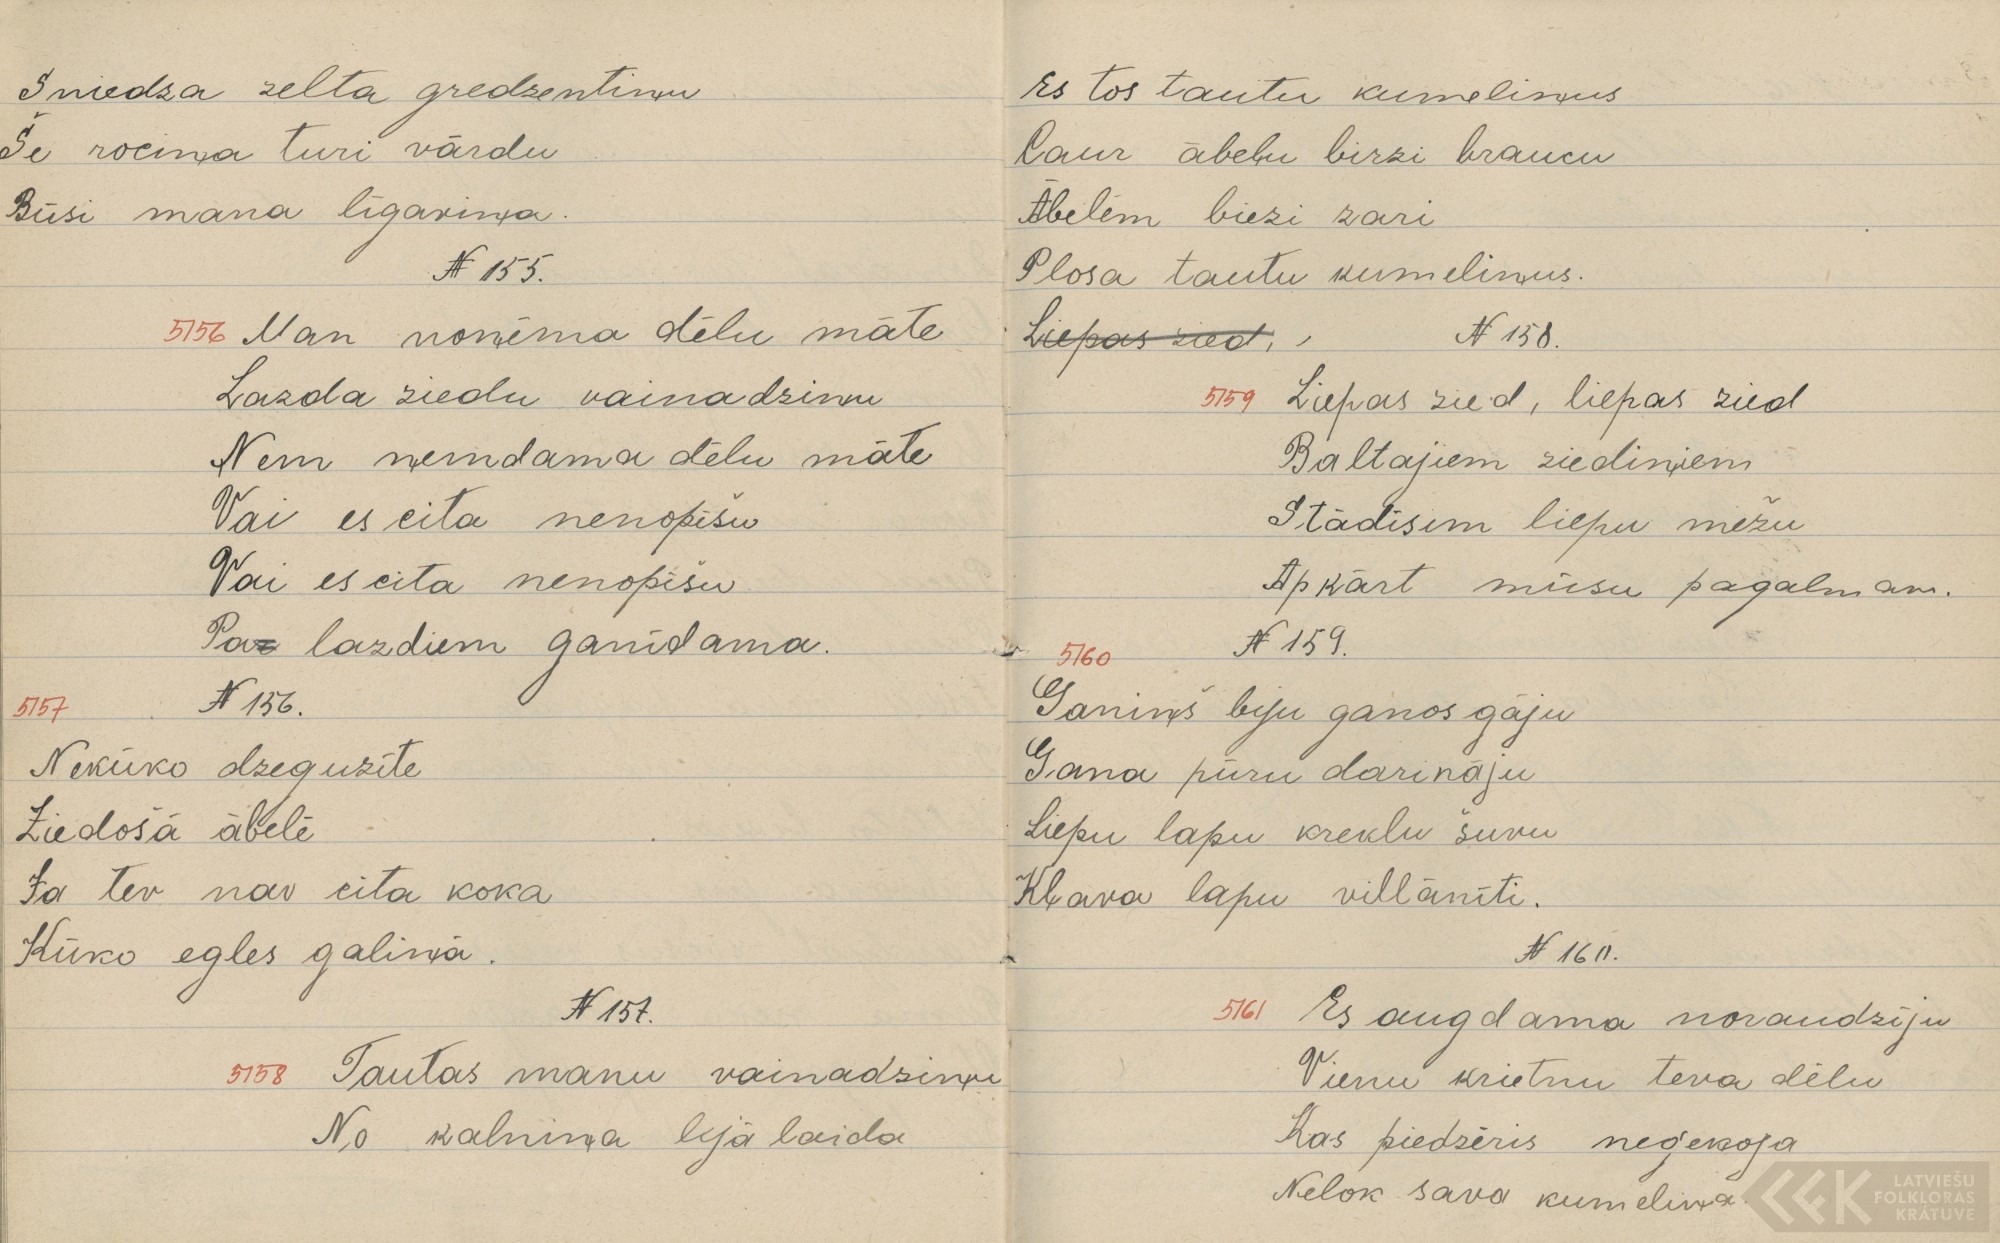 Sniedza zelta gredzentiņu
Še rociņa turi vārdu
Būsi mana līgaviņa.
№ 155.
5156 Man noņēma dēlu māte
Lazda ziedu vainadziņu
Ņem ņemdama dēlu māte
Vai es cita nenopīšu
Vai es cita nenopīšu
Pa lazdiem ganīdama.
5157 № 156.
Nekūko dzeguzīte
Ziedošā ābelē
Ja tev nav cita koka
Kūko egles galiņā.
№ 157.
5158 Tautas manu vainadziņu
No kalniņa lejā laida
Es tos tautu kumeliņus
Caur ābeļu birzi braucu
Ābelēm biezi zari
Plosa tautu kumeliņus.
Liepas zied, № 158.
5159 Liepas zied, liepas zied
Baltajiem ziediņiem
Stādīsim liepu mežu
Apkārt mūsu pagalmam.
5160 № 159.
Ganiņš biju ganos gāju
Gana pūru darināju
Liepu lapu kreklu šuvu
Kļava lapu villānīti.
№ 160.
5161 Es augdama noraudzīju
Vienu krietnu teva dēlu
Kas piedzēris neģekoja
Nelok sava kumeliņa.
LATVIEŠU
FOLKLORAS
KRĀTUVE